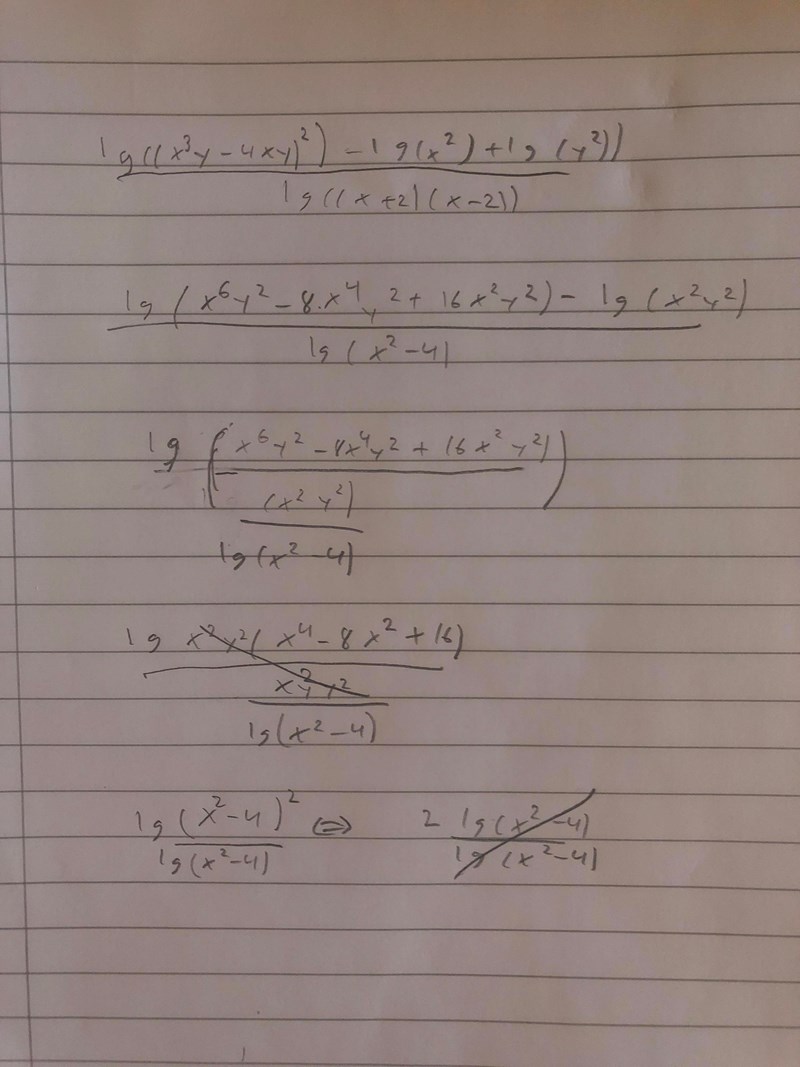 lg((x³y - 4xy)²) - lg(x²) + lg(y²))
lg((x+2)(x-2))
lg(x⁶y² - 8.x⁴y² + 16x²y²) - lg(x²y²)
lg(x²-4)
lg((x⁶y² - 8x⁴y² + 16x²y²)
(x²y²))
lg(x²-4)
lg x²y²(x⁴ - 8x² + 16)
x²y²
lg(x²-4)
lg(x²-4)² ⇔ 2 lg(x²-4)
lg(x²-4) lg(x²-4)